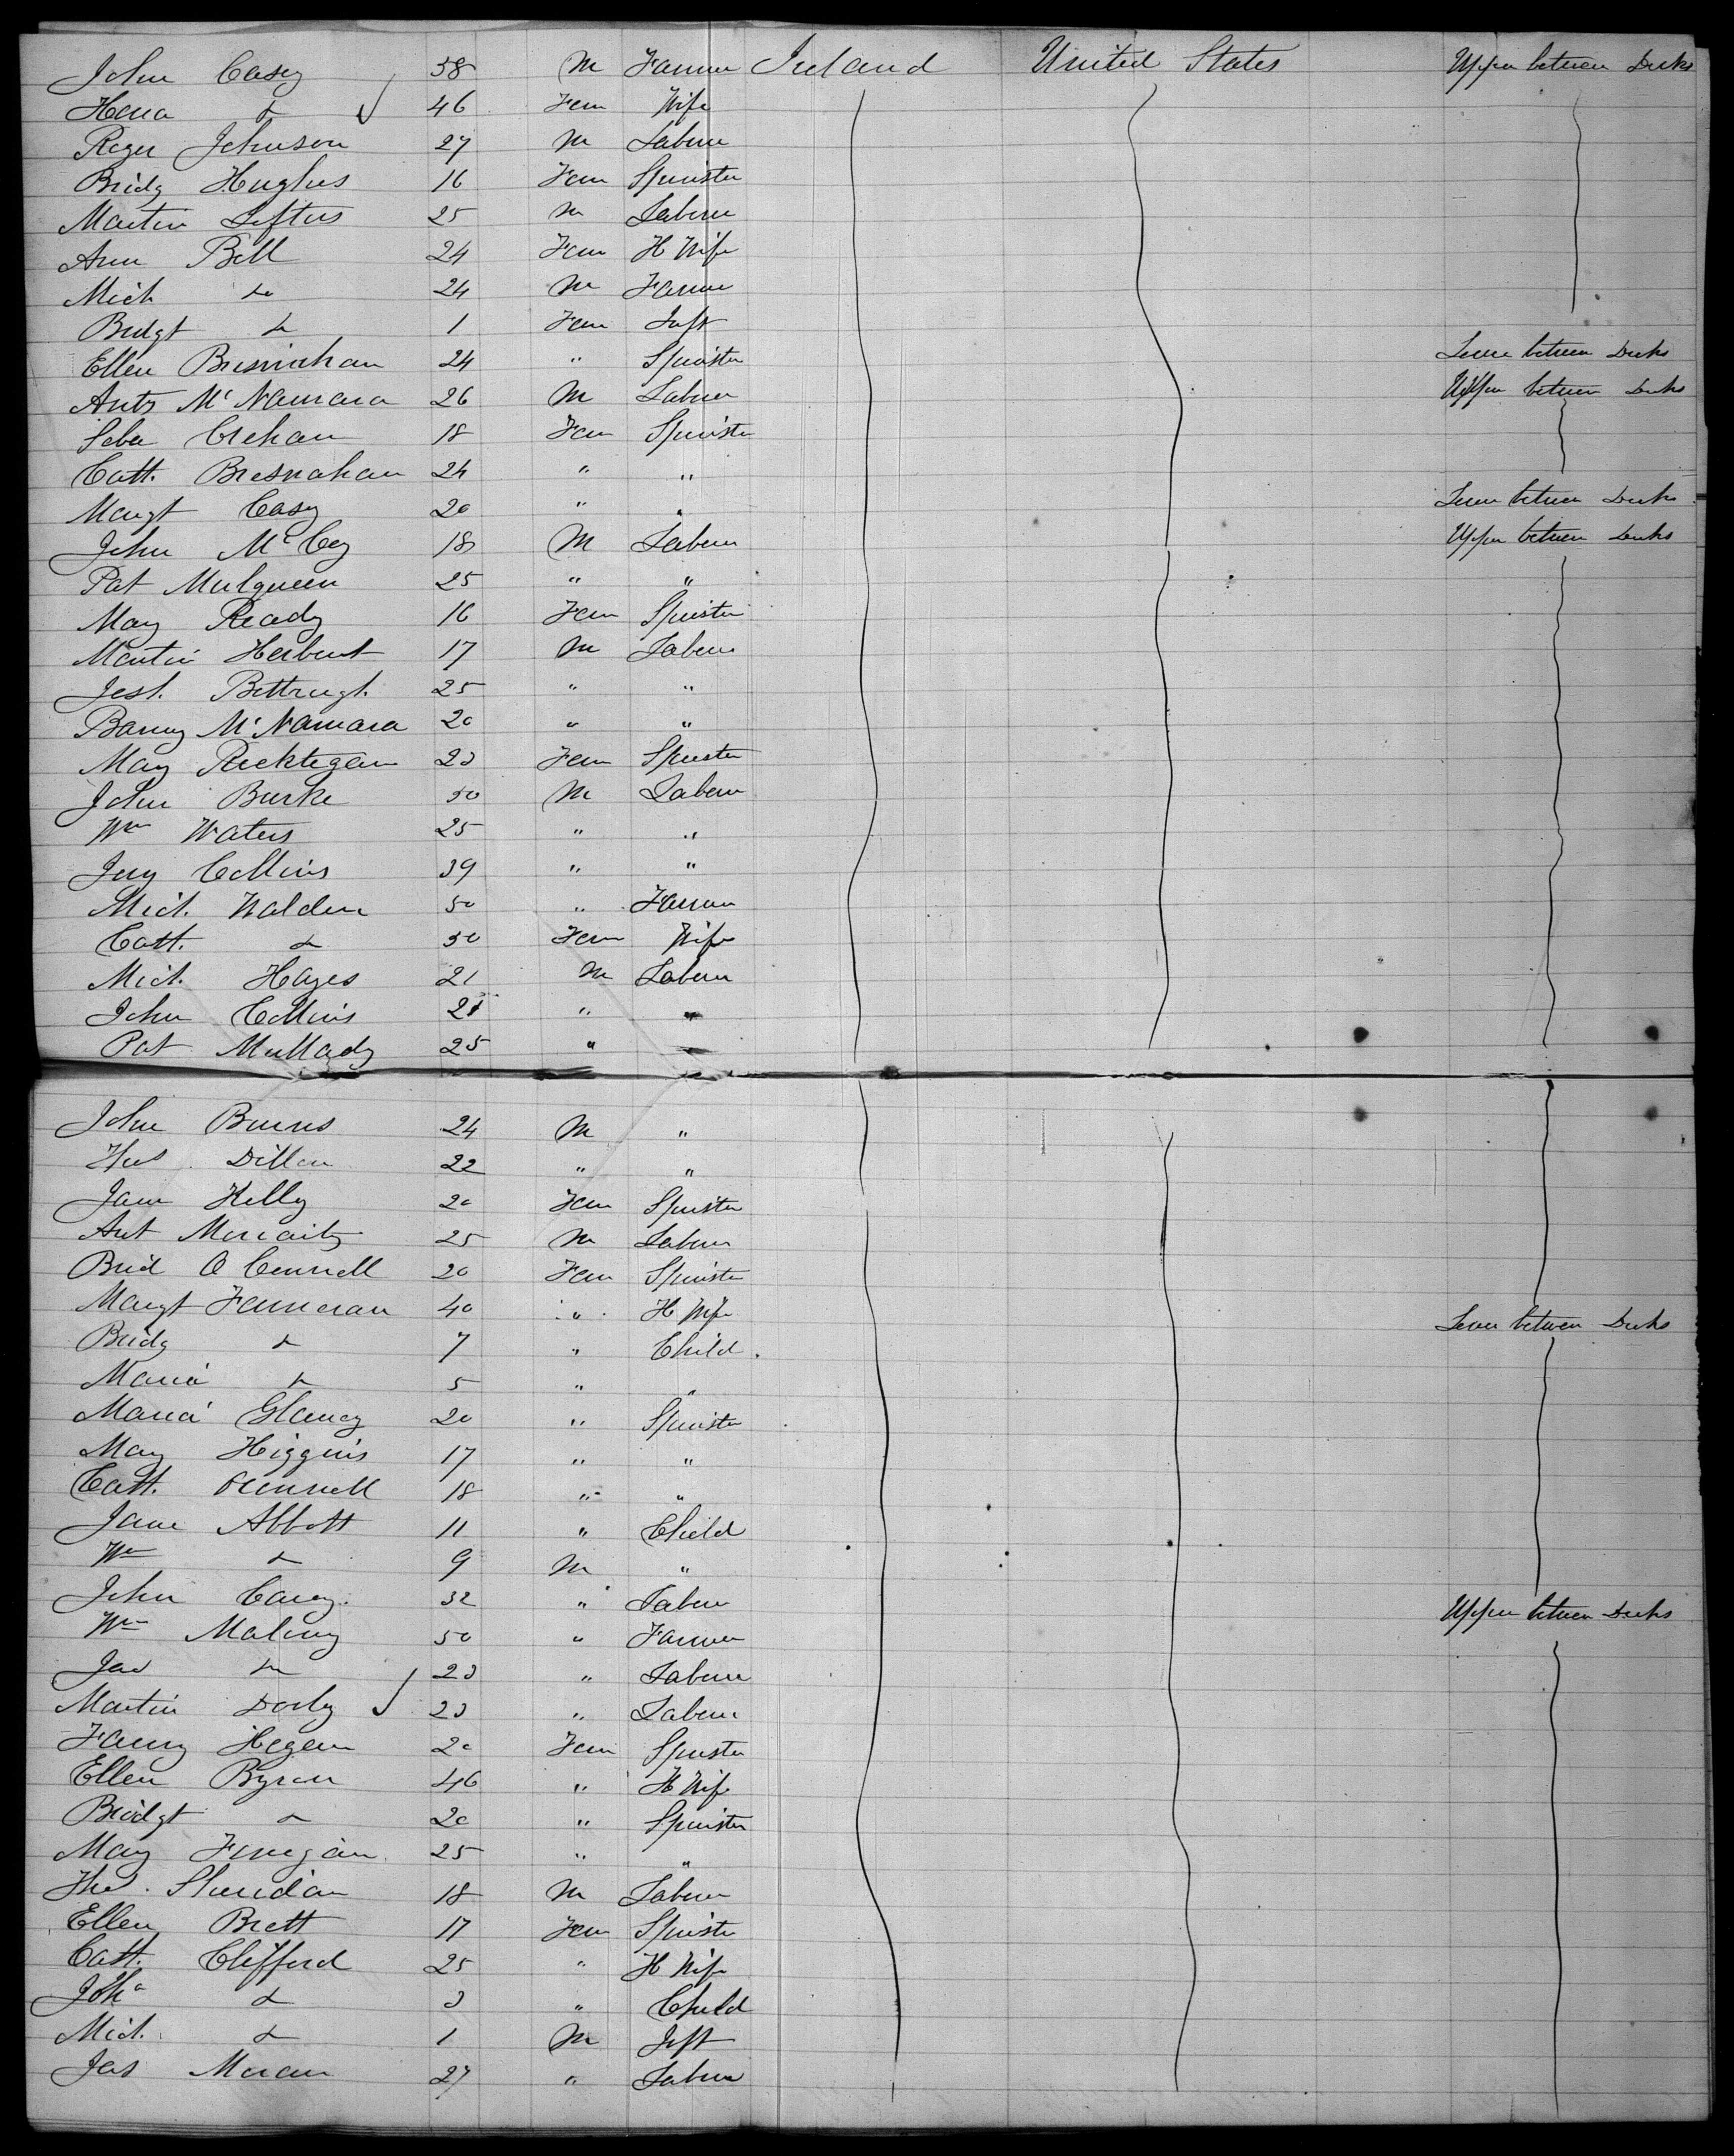 John Casey 58 M Farmer Ireland United States Upper between Decks
Hena do 46 Fem Wife
Roger Johnson 27 M Labour
Bridg Hughes 16 Fem Spinster
Martin Loftus 25 M Labour
Ann Bell 24 Fem H Wife
Mich do 24 M Farmer
Bridgt do 1 Fem Inft
Ellen Bresnahan 24 " Spinster Lower between Decks
Anty McNamara 26 M Labour Upper between Decks
Crehan 18 Fem Spinster
Cath. Bresnahan 24 " "
Margt Casey 20 " " Lower between Decks
John McCoy 18 M Labour Upper between Decks
Pat Mulqueen 25 " "
Mary Ready 16 Fem Spinster
Martin Herbert 17 M Labour
Josh. 25 " "
Barny McNamara 20 " "
Mary 23 Fem Spinster
John Burke 30 M Labour
Wm Waters 25 " "
Jery Collins 39 " "
Mich. Walden 50 " Farmer
Cath. do 50 Fem Wife
Mich. Hayes 21 M Labour
John Collins 21 " "
Pat Mullady 25 " "
John Burns 24 M "
Thos. Dillon 22 " "
Jane Kelly 20 Fem Spinster
Ant Moriarity 25 M Labour
Brid O Connell 20 Fem Spinster
Margt Fanneran 40 " H Wife Lower between Decks
Bridg do 7 " Child
Maria do 5 " "
Maria Glancy 20 " Spinster
Mary Higgins 17 " "
Cath. 18 " "
Jane Abbott 11 " Child
Wm do 9 M "
John Carey 32 " Labour Upper between Decks
Wm Malony 50 " Farmer
Jas do 23 " Labour
Martin Darby 23 " Labour
Fanny Hogan 20 Fem Spinster
Ellen Byron 46 " H Wife
Bridgt do 20 " Spinster
Mary Finegan 25 " "
Thos. Sheridan 18 M Labour
Ellen Brett 17 Fem Spinster
Cath. Clifford 25 " H Wife
Joha do 3 " Child
Mich. do 1 M Inft
Jas Moran 27 " Labour